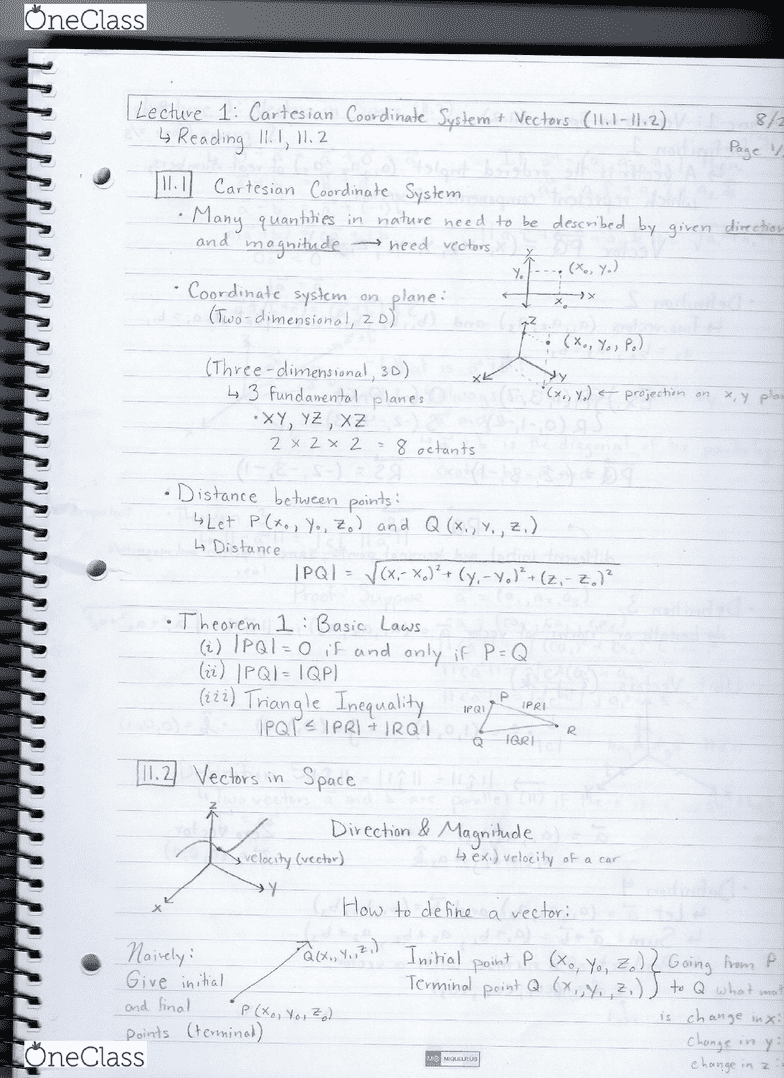 OneClass
Lecture 1: Cartesian Coordinate System + Vectors (11.1-11.2)
8/2
↳ Reading 11.1, 11.2
Page 1/
11.1 Cartesian Coordinate System
• Many quantities in nature need to be described by given direction
and magnitude → need vectors
y
y₀
(x₀, y₀)
x₀
x
• Coordinate system on plane:
(Two-dimensional, 2D)
z
(x₀, y₀, p₀)
x
y
(x₀, y₀) ← projection on x,y plan
(Three-dimensional, 3D)
↳ 3 fundamental planes
• XY, YZ, XZ
2 × 2 × 2 = 8 octants
• Distance between points:
↳ Let P(x₀, y₀, z₀) and Q(x₁, y₁, z₁)
↳ Distance
|PQ| = √(x₁-x₀)² + (y₁-y₀)² + (z₁-z₀)²
• Theorem 1: Basic Laws
(i) |PQ| = 0 if and only if P=Q
(ii) |PQ| = |QP|
(iii) Triangle Inequality
|PQ| ≤ |PR| + |RQ|
P
|PQ|
|PR|
R
Q
|QR|
11.2 Vectors in Space
z
velocity (vector)
y
x
Direction & Magnitude
↳ ex.) velocity of a car
How to define a vector:
Naively:
Give initial
and final
points (terminal)
Q(x₁, y₁, z₁)
P(x₀, y₀, z₀)
Initial point P (x₀, y₀, z₀) } Going from P
Terminal point Q (x₁, y₁, z₁) } to Q what mat
is change in x:
change in y:
change in z
OneClass